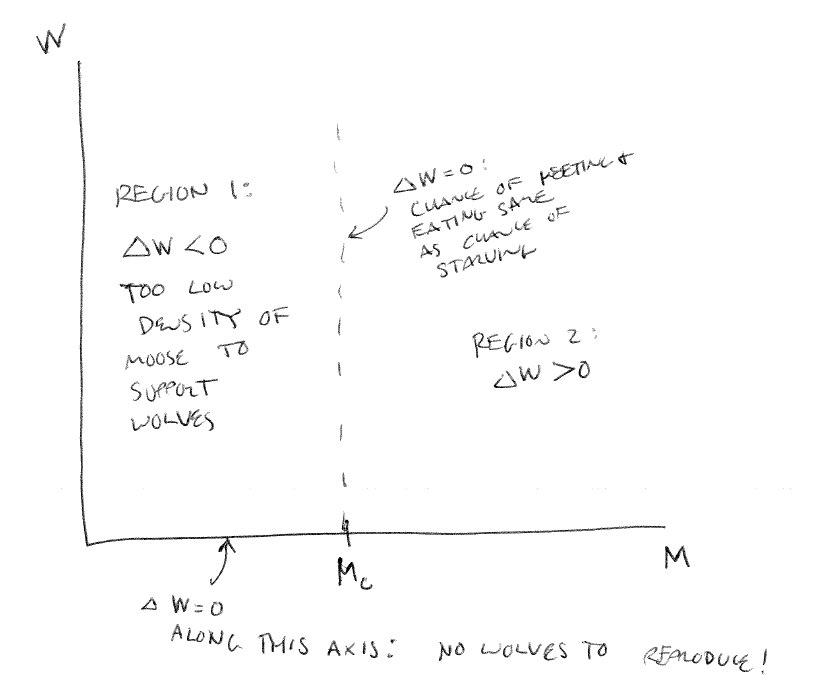 W
REGION 1:
ΔW < 0
TOO LOW
DENSITY OF
MOOSE TO
SUPPORT
WOLVES
ΔW = 0:
CHANCE OF MEETING &
EATING SAME
AS CHANCE OF
STARVING
REGION 2:
ΔW > 0
Mc
M
ΔW = 0
ALONG THIS AXIS: NO WOLVES TO REPRODUCE!